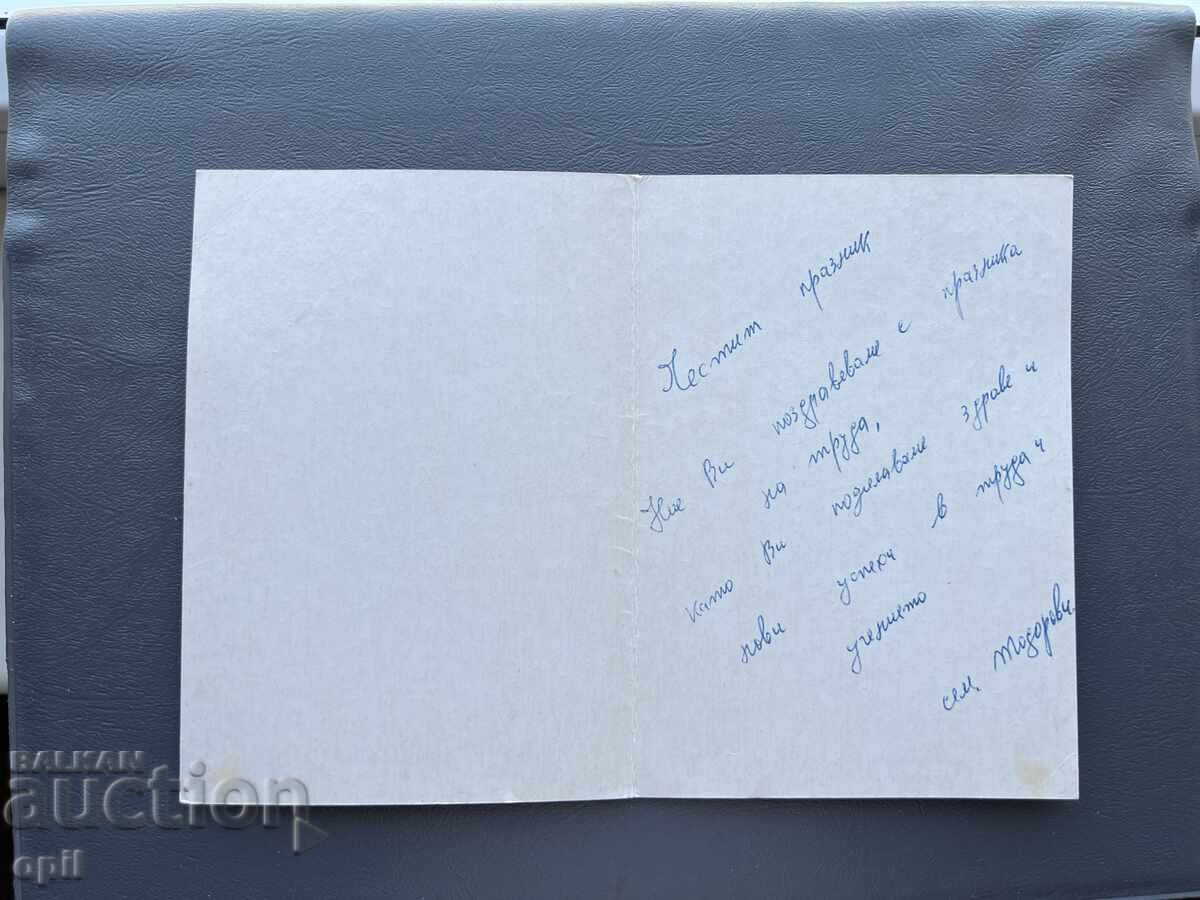 Честит празник
Ние Ви поздравяваме с празника
на труда,
като Ви пожелаваме здраве и
нови успехи в труда и
учението
сем. Тодорови.
BALKAN
auction
opil